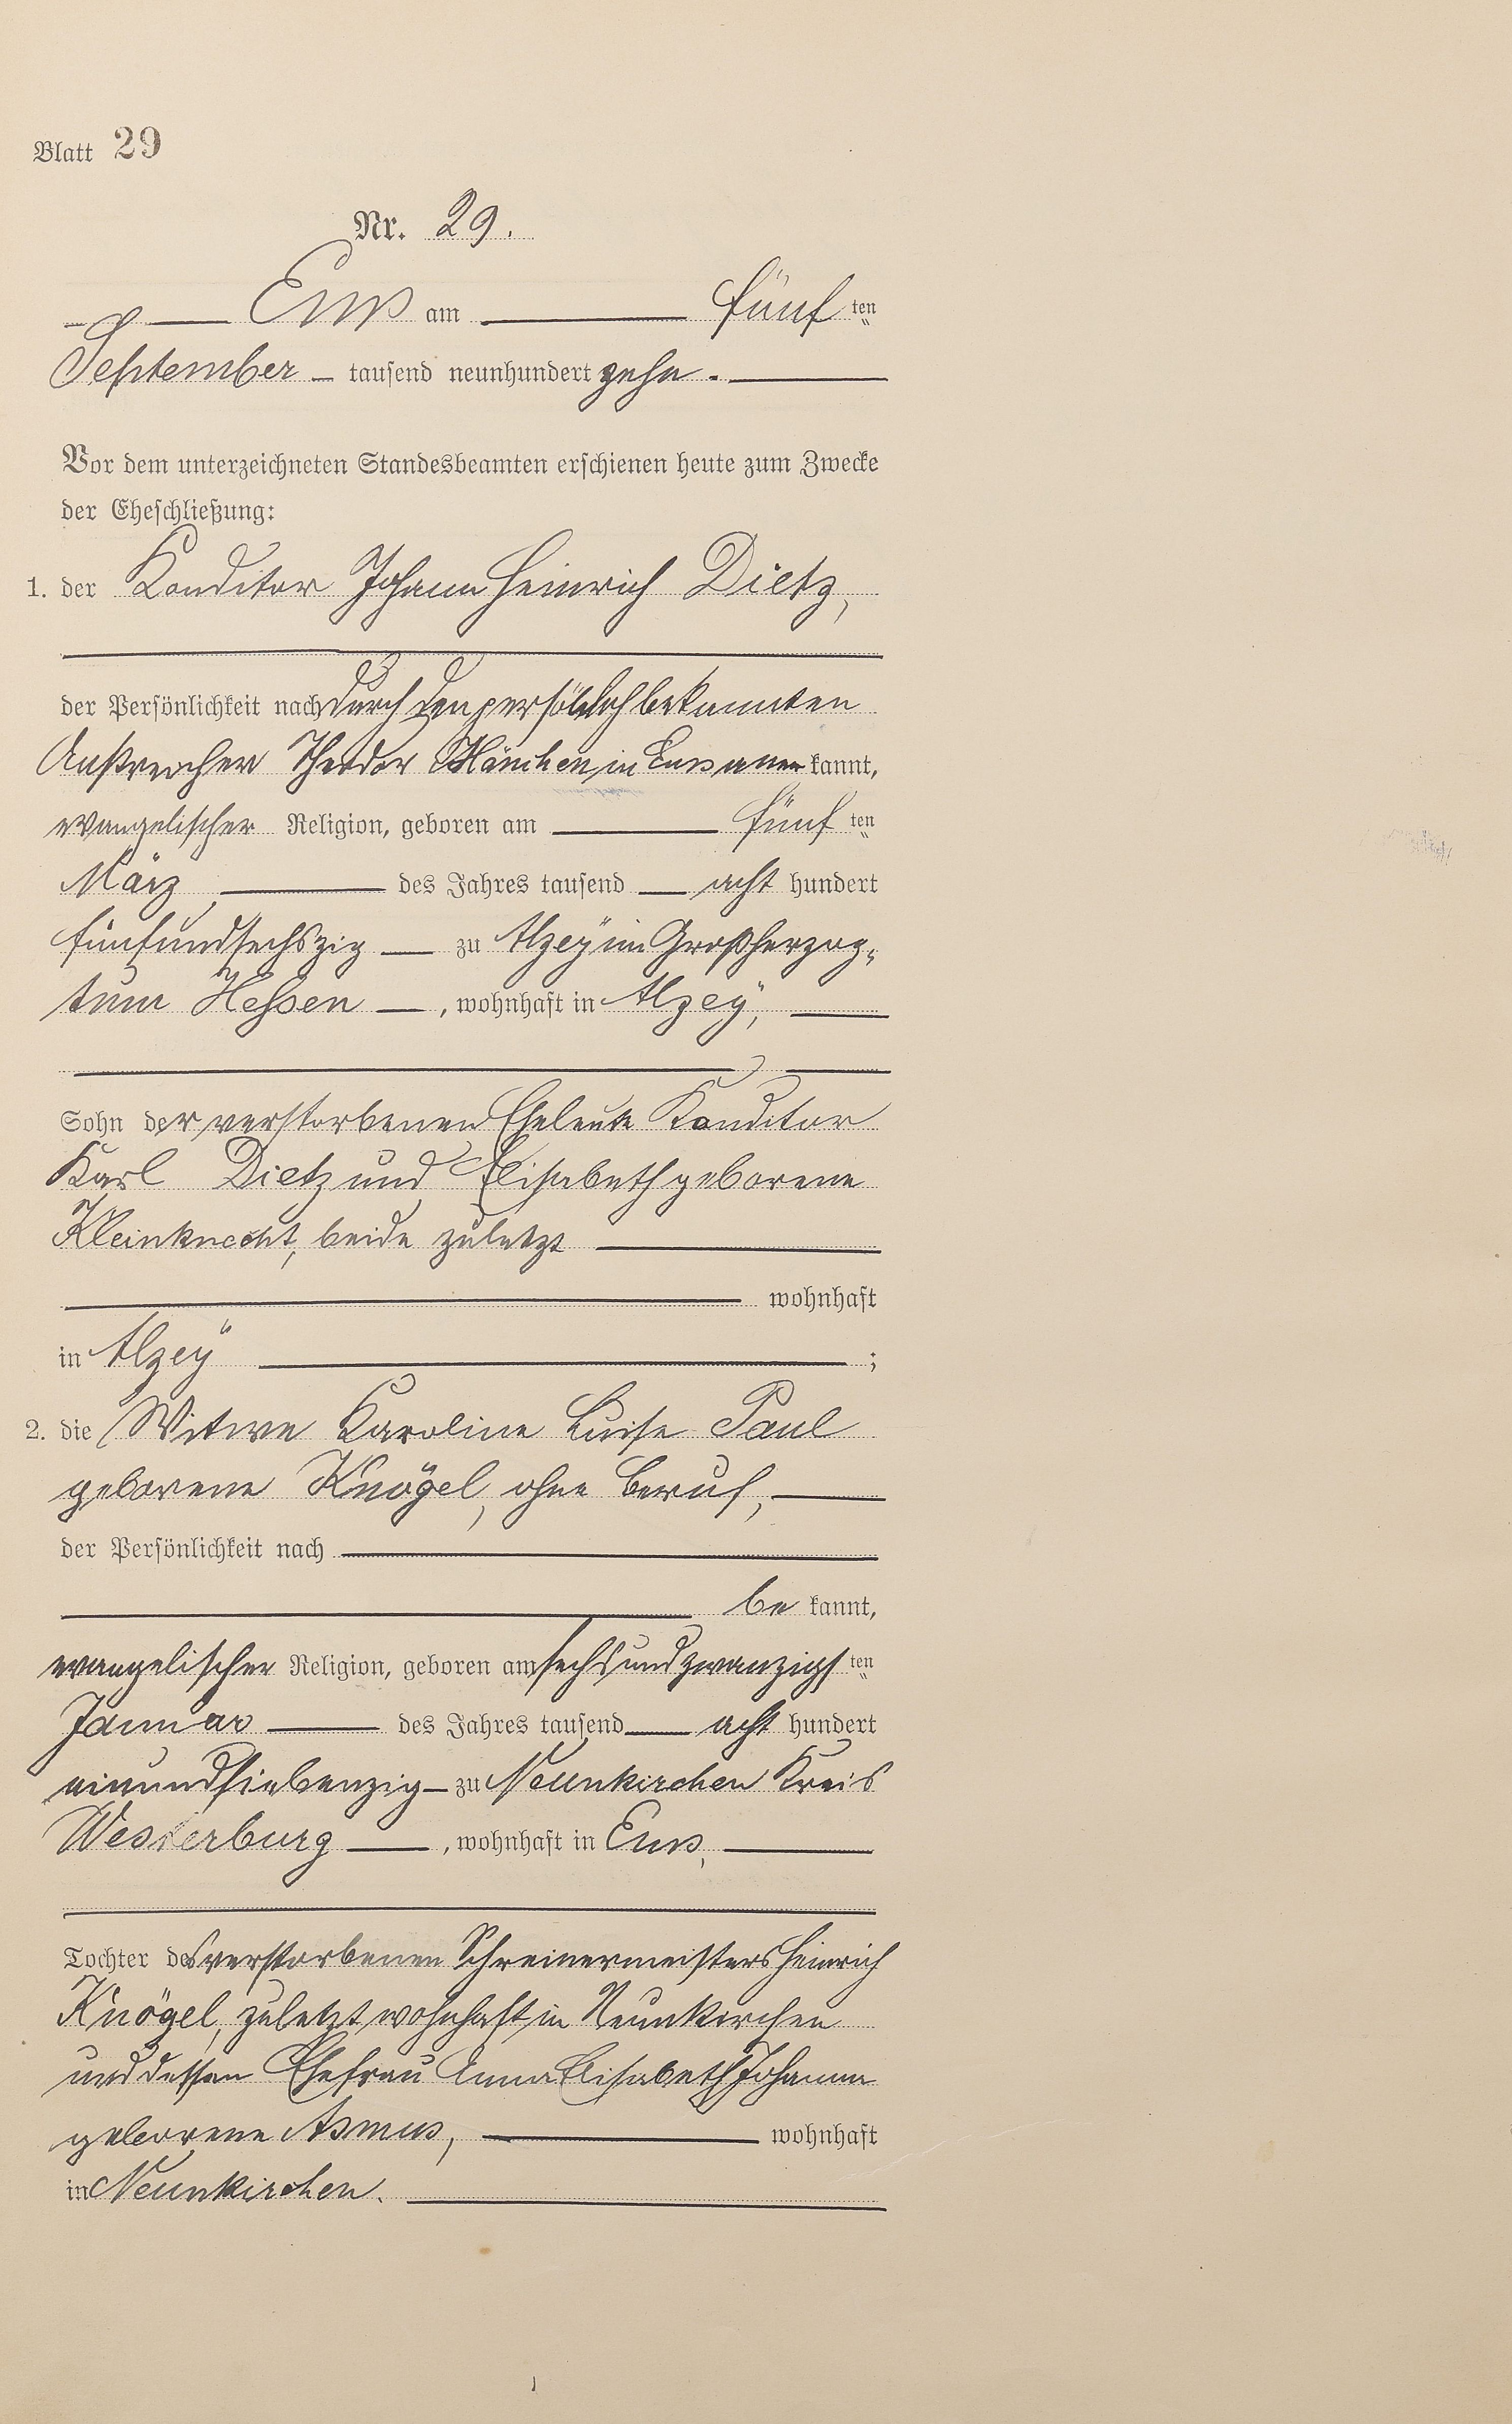 Blatt 29
Nr. 29.
Ems am fünf ten
September tausend neunhundert zehn.
Vor dem unterzeichneten Standesbeamten erschienen heute zum Zwecke
der Eheschließung:
1. der Konditor Johann Heinrich Dietz,
der Persönlichkeit nach durch den persönlich bekannten
Anstreicher Theodor in Ems aner kannt,
evangelischer Religion, geboren am fünf ten
März des Jahres tausend acht hundert
fünfundsechszig zu Alzey im Großherzog-
tum Hessen, wohnhaft in Alzey,
Sohn der verstorbenen Eheleute Konditor
Karl Dietz und Elisabeth geborene
Kleinknecht, beide zuletzt
wohnhaft
in Alzey;
2. die Witwe Karoline Luise Paul
geborene Knögel, ohne Beruf,
der Persönlichkeit nach
be kannt,
evangelischer Religion, geboren am sechsundzwanzigs ten
Januar des Jahres tausend acht hundert
einundsiebenzig zu Neunkirchen Kreis
Westerburg, wohnhaft in Ems,
Tochter des verstorbenen Schreinermeisters Heinrich
Knögel, zuletzt wohnhaft in Neunkirchen
und dessen Ehefrau Anna Elisabeth Johanna
geborene Asmus, wohnhaft
in Neunkirchen.